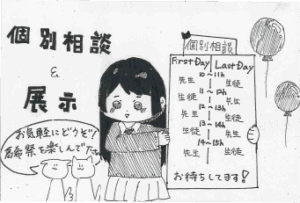 個別相談
&
展示
お気軽にどうぞ!!
祭を楽しんで
個別相談
First Day Last Day
10〜11h
先生 生徒
11〜12h
生徒
12〜13h
先生
13〜14h
生徒 先生
14〜15h
生徒
お待ちしてます!